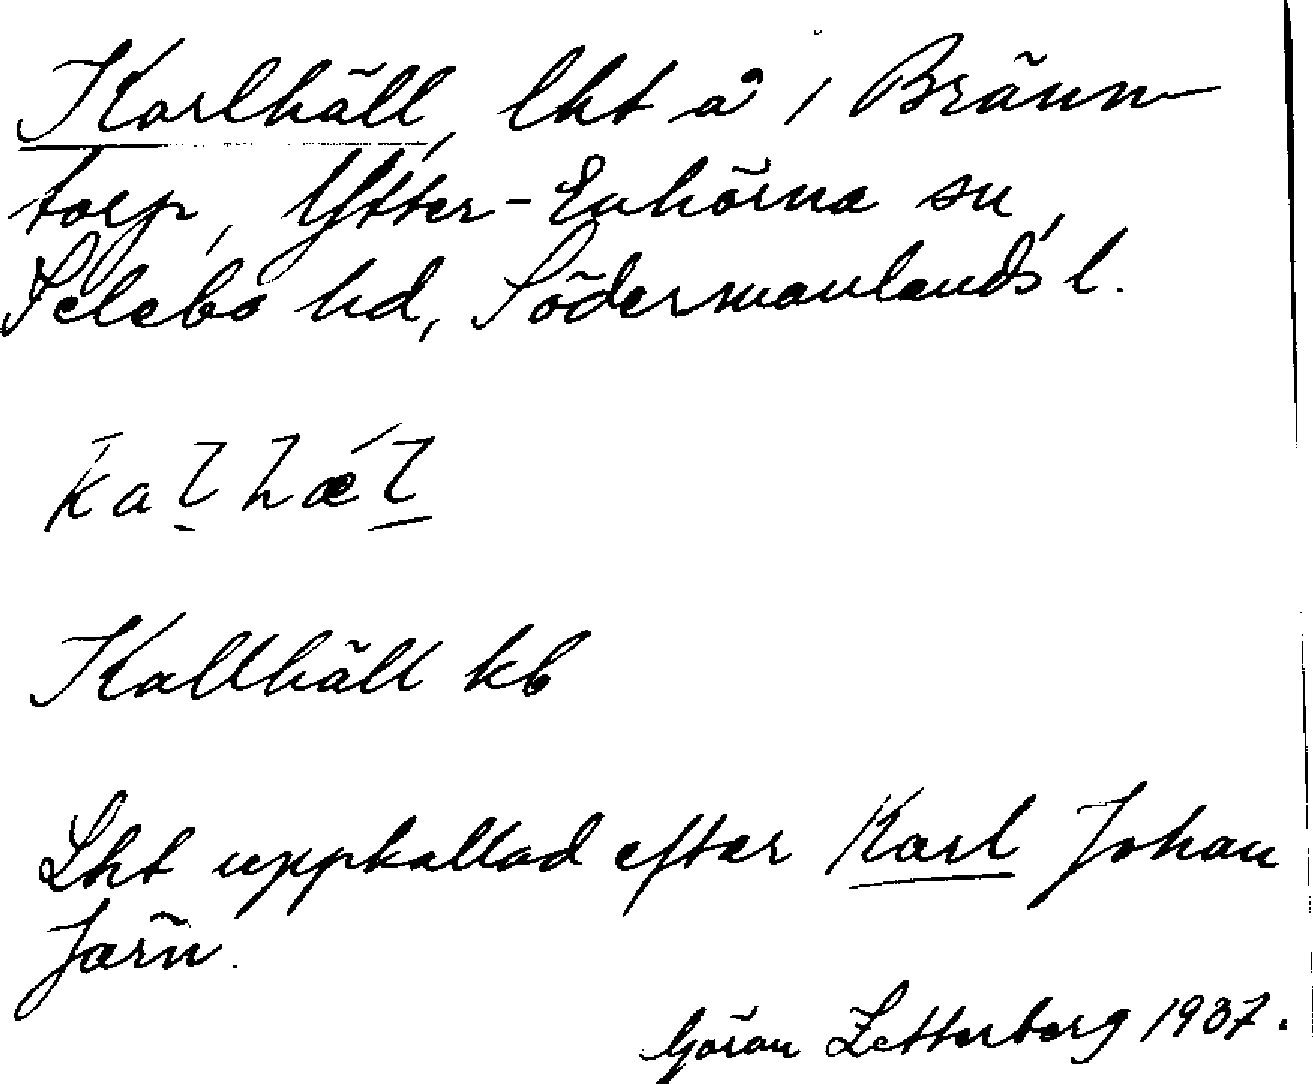 Karlhäll, lht å 1 Bränn-
torp, Ytter-Enhörna sn,
Selebo hd, Södermanlands l.
kaḻhǽḻ
Kallhäll kb
Lht uppkallad efter Karl Johan
Järn.
Göran Zetterberg 1937.